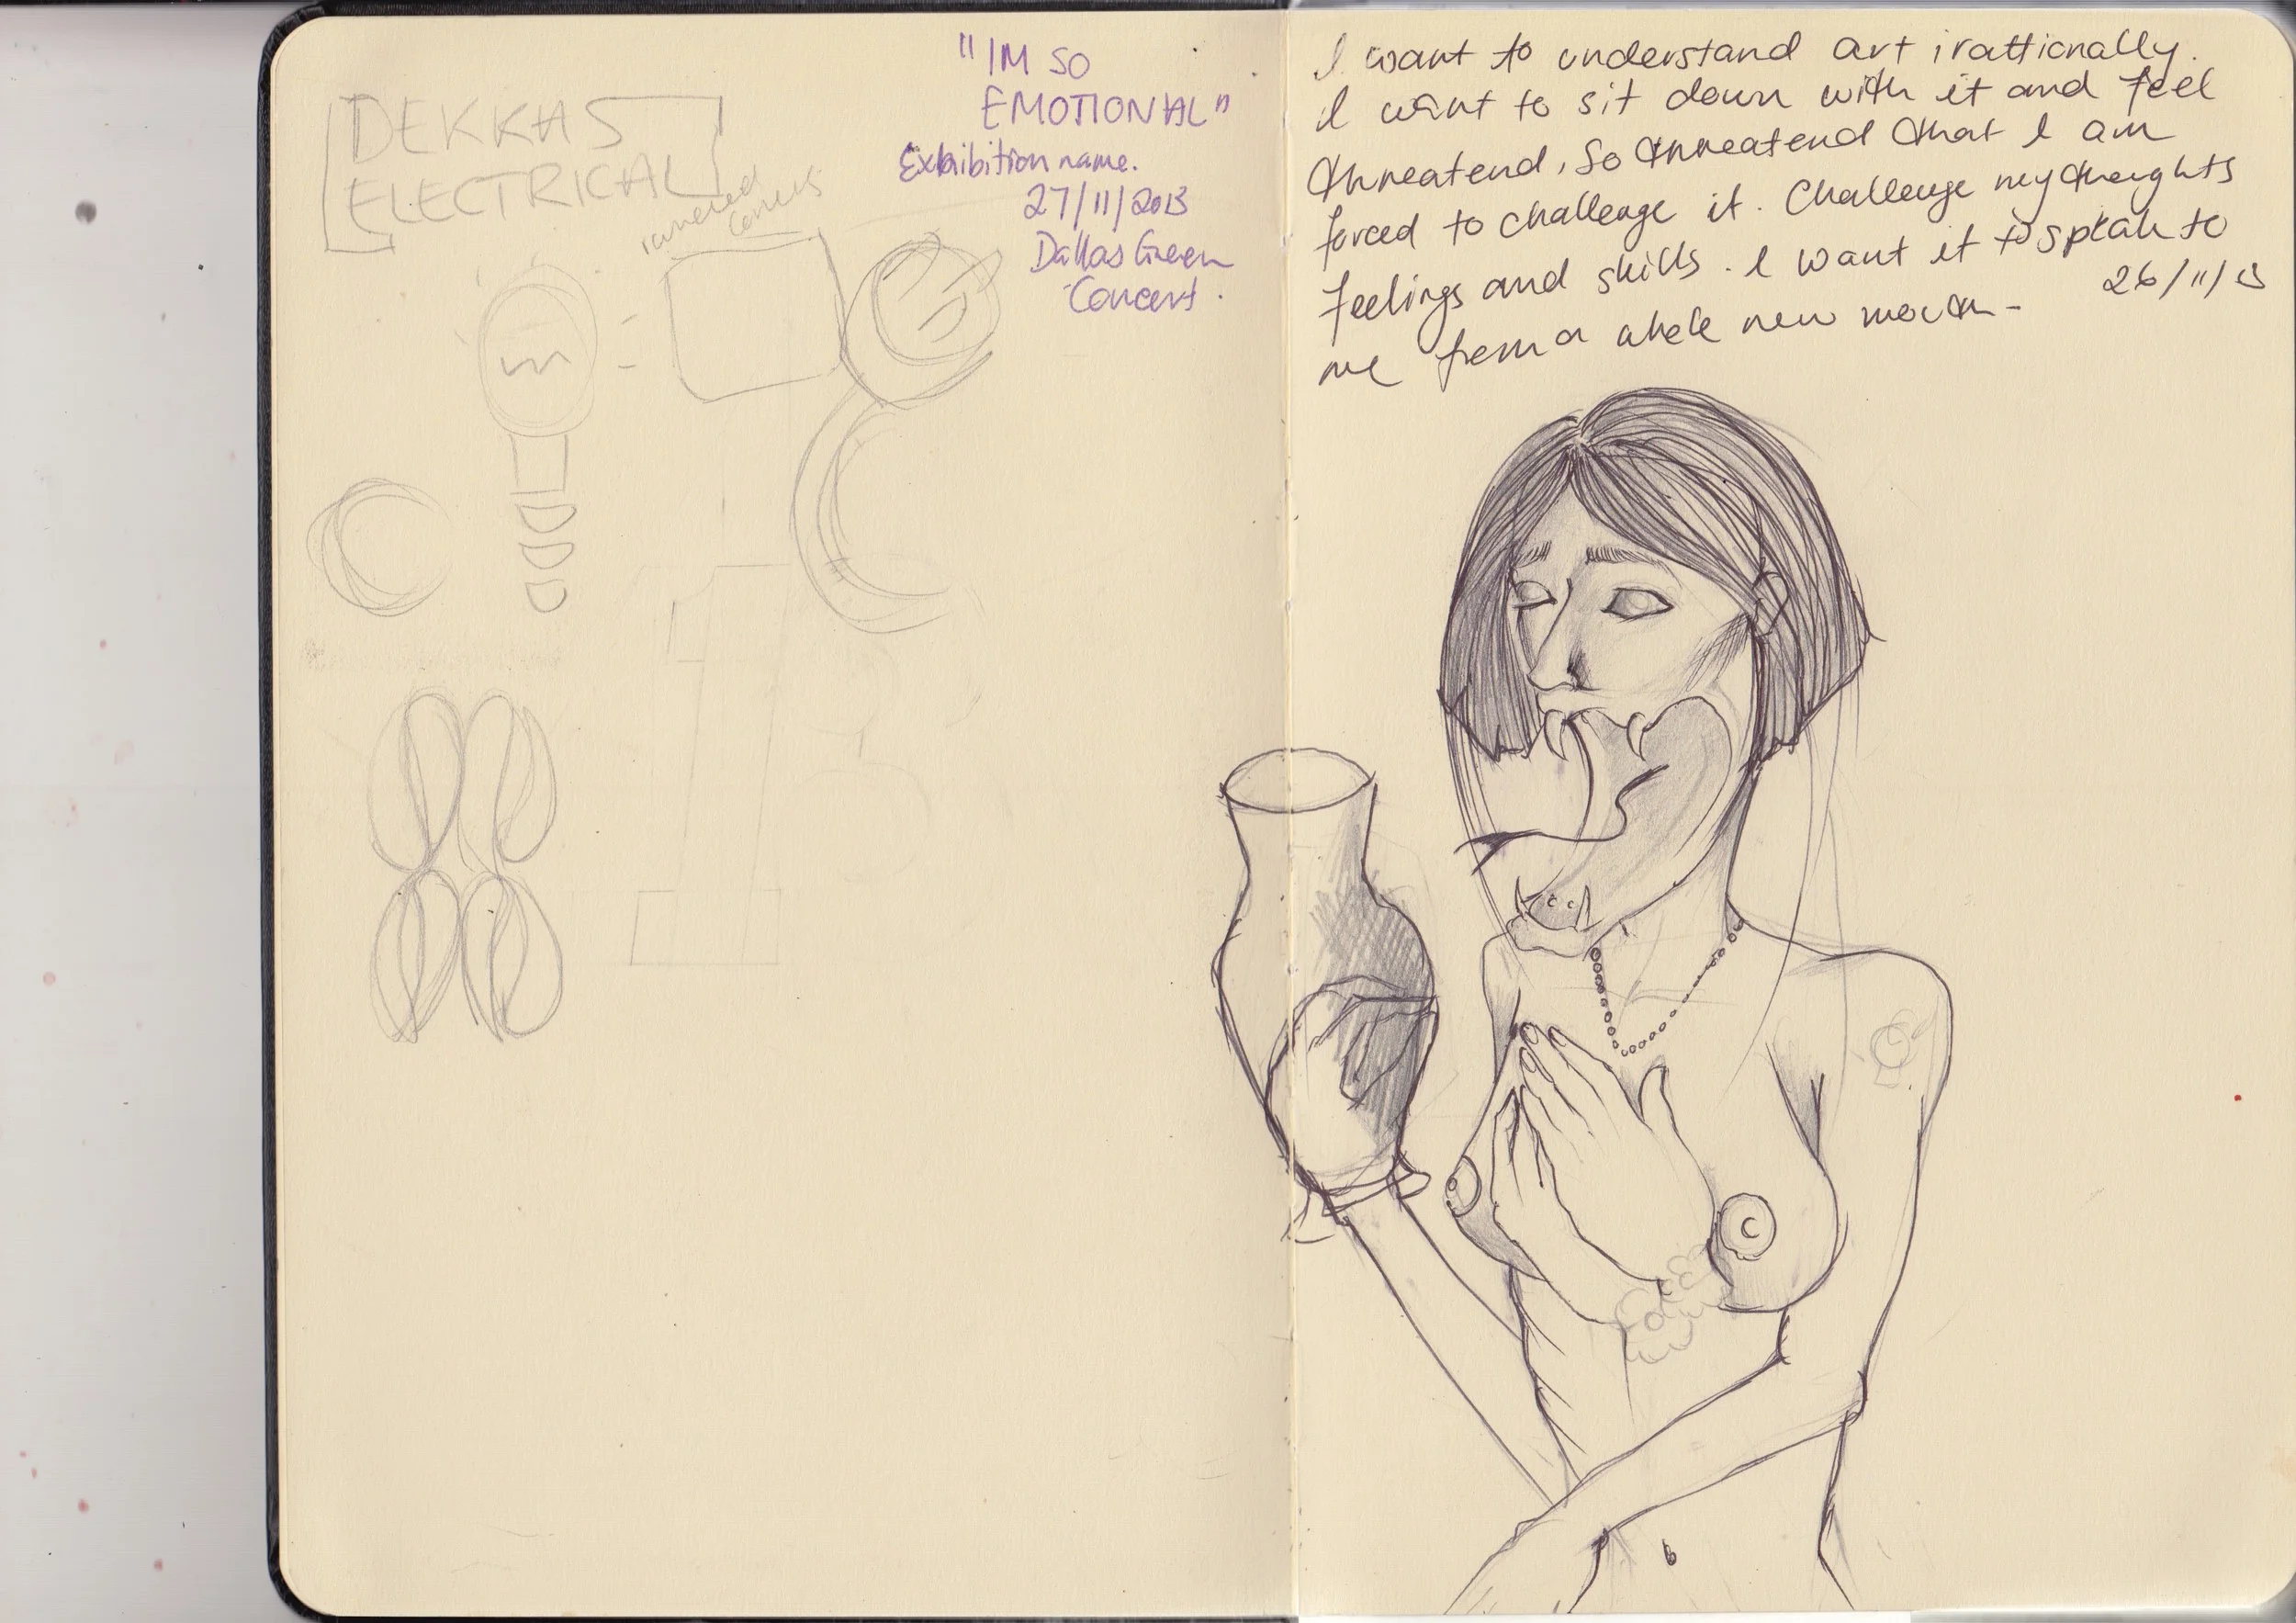 DEKKAS
ELECTRICAL
rounded
corners
"IM SO
EMOTIONAL"
Exhibition name.
27/11/2013
Dallas Green
Concert.
I want to understand art irattionally.
I want to sit down with it and feel
threatend, So threatend that I am
forced to challenge it. Challenge my thoughts
feelings and skills. I want it to speak to
me from a whole new mouth-
26/11/13